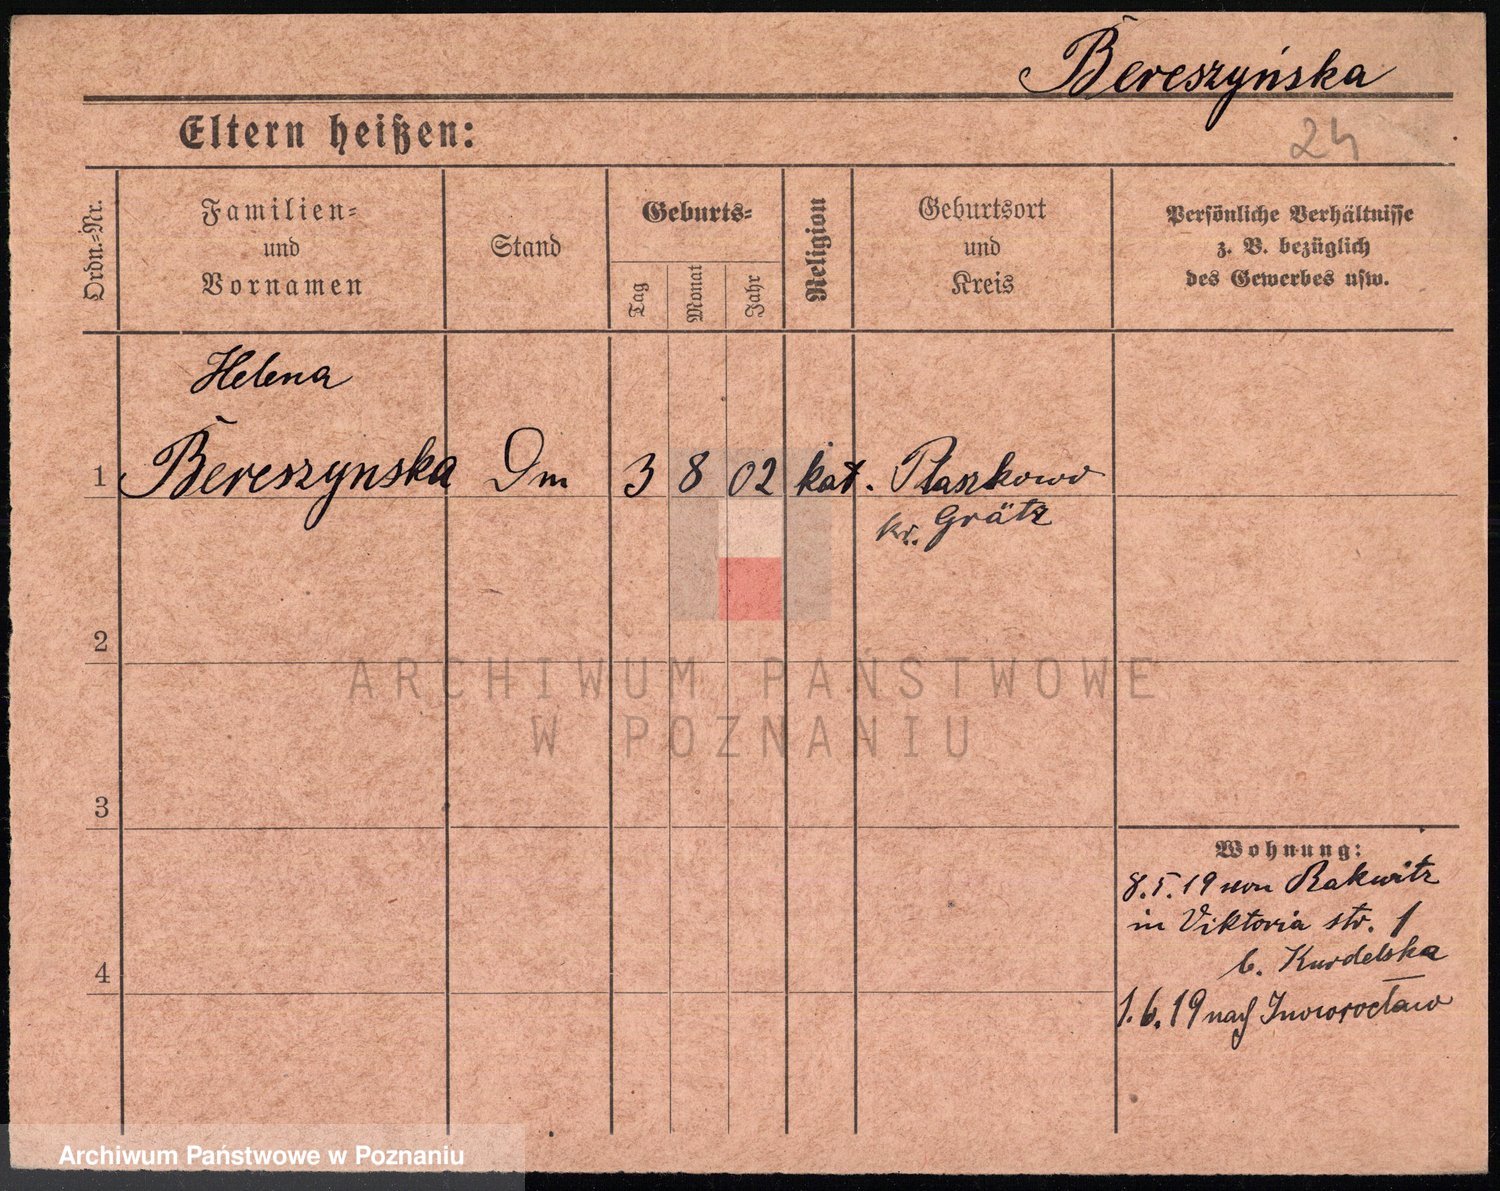 Bereszyńska
24
Eltern heißen:
Ordn.-Nr.
Familien-
und
Vornamen
Stand
Geburts-
Tag
Monat
Jahr
Religion
Geburtsort
und
Kreis
Persönliche Verhältnisse
z. B. bezüglich
des Gewerbes usw.
Helena
1 Bereszynska Dm 3 8 02 kat. Ptaszkowo
kr. Grätz
2
3
4
Wohnung:
8.5.19 von Rakwitz
in Viktoria str. 1
b. Kurdelska
1.6.19 nach Inowrocław
ARCHIWUM PAŃSTWOWE
W POZNANIU
Archiwum Państwowe w Poznaniu